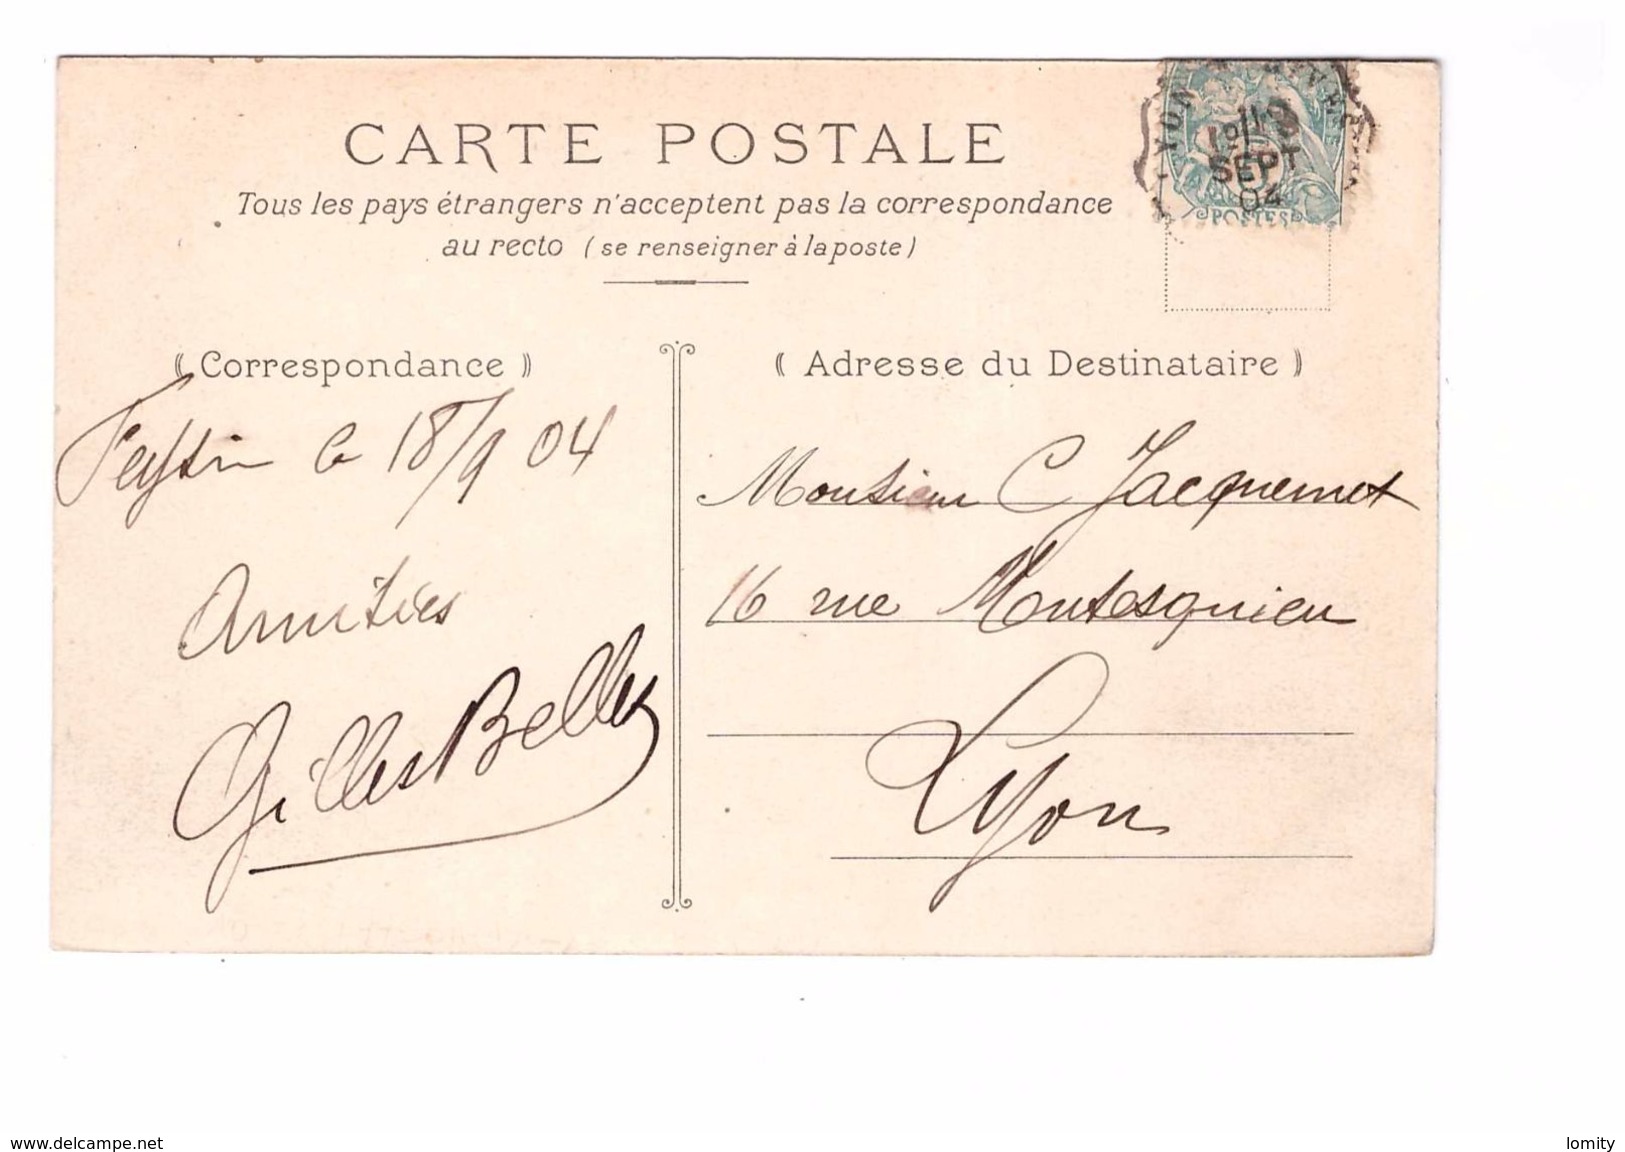 CARTE POSTALE
Tous les pays étrangers n'acceptent pas la correspondance
au recto (se renseigner à la poste)
Correspondance
Adresse du Destinataire
Feysin le 18/9 04
Amitiés
Gilles Belley
Monsieur C Jacquemet
16 rue Montesquieu
Lyon
SEPT
04
POSTES
www.delcampe.net
lomity